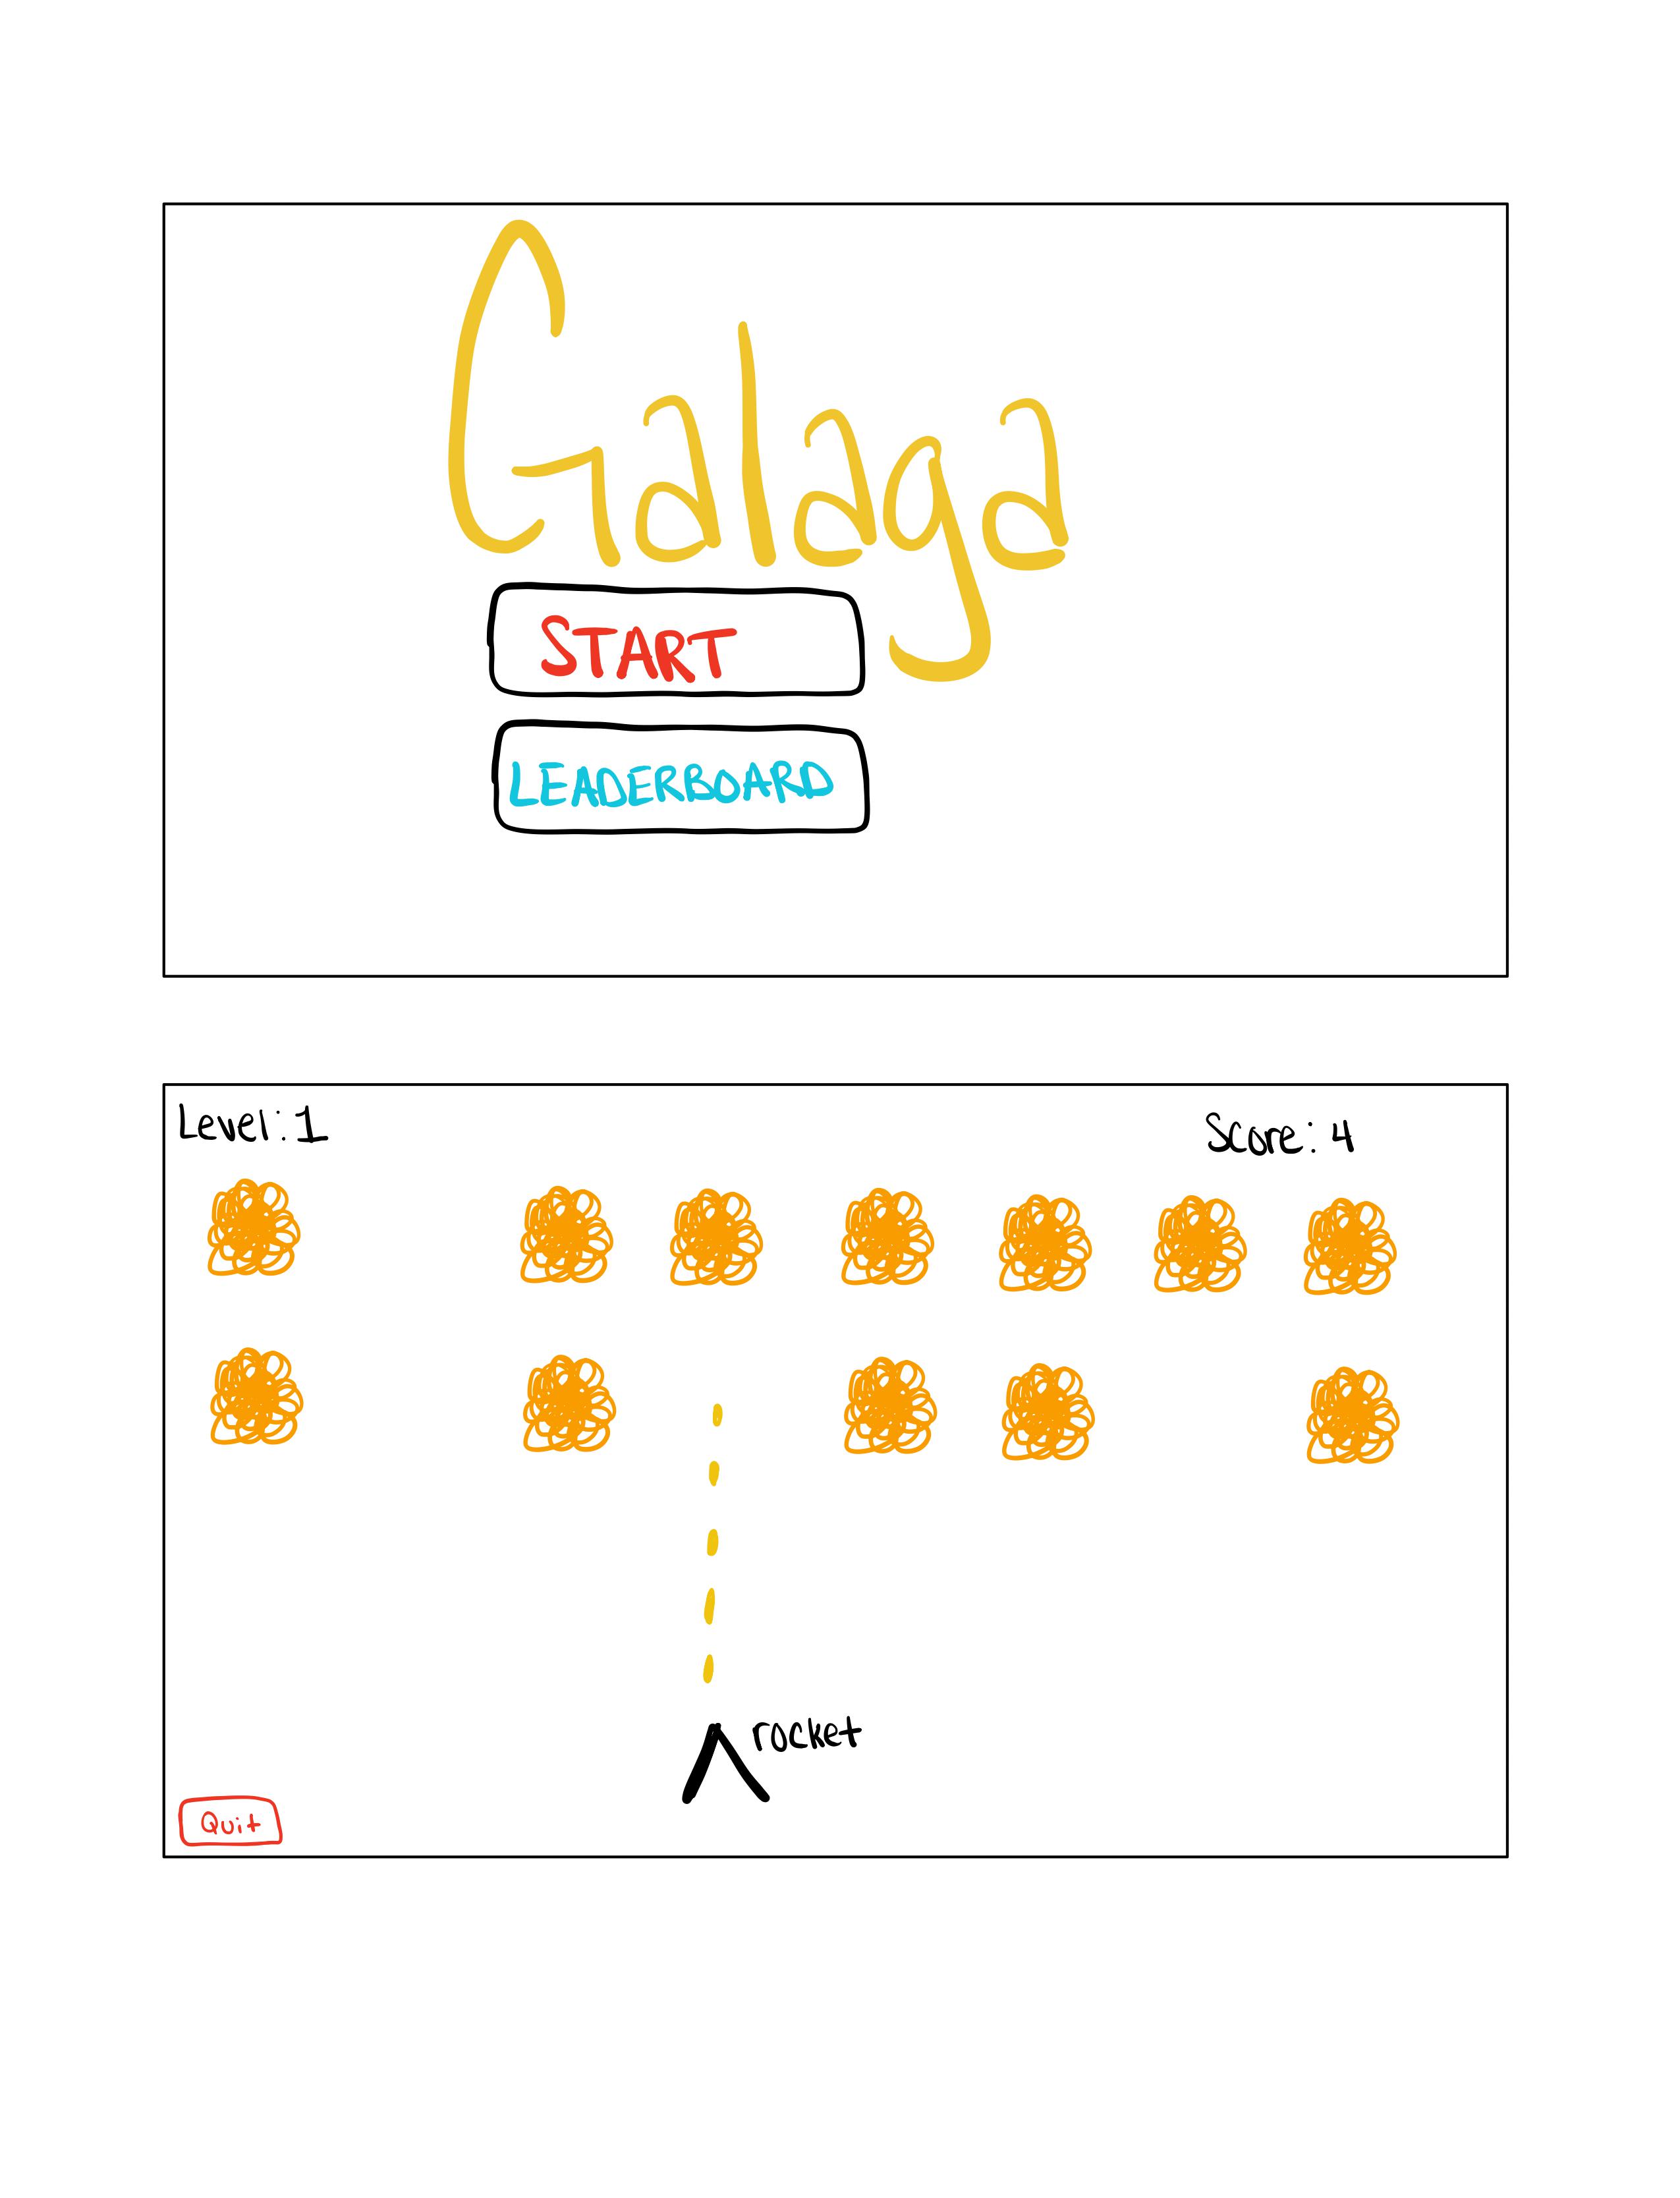 Galaga
START
LEADERBOARD
Level: 1
Score: 4
rocket
Quit